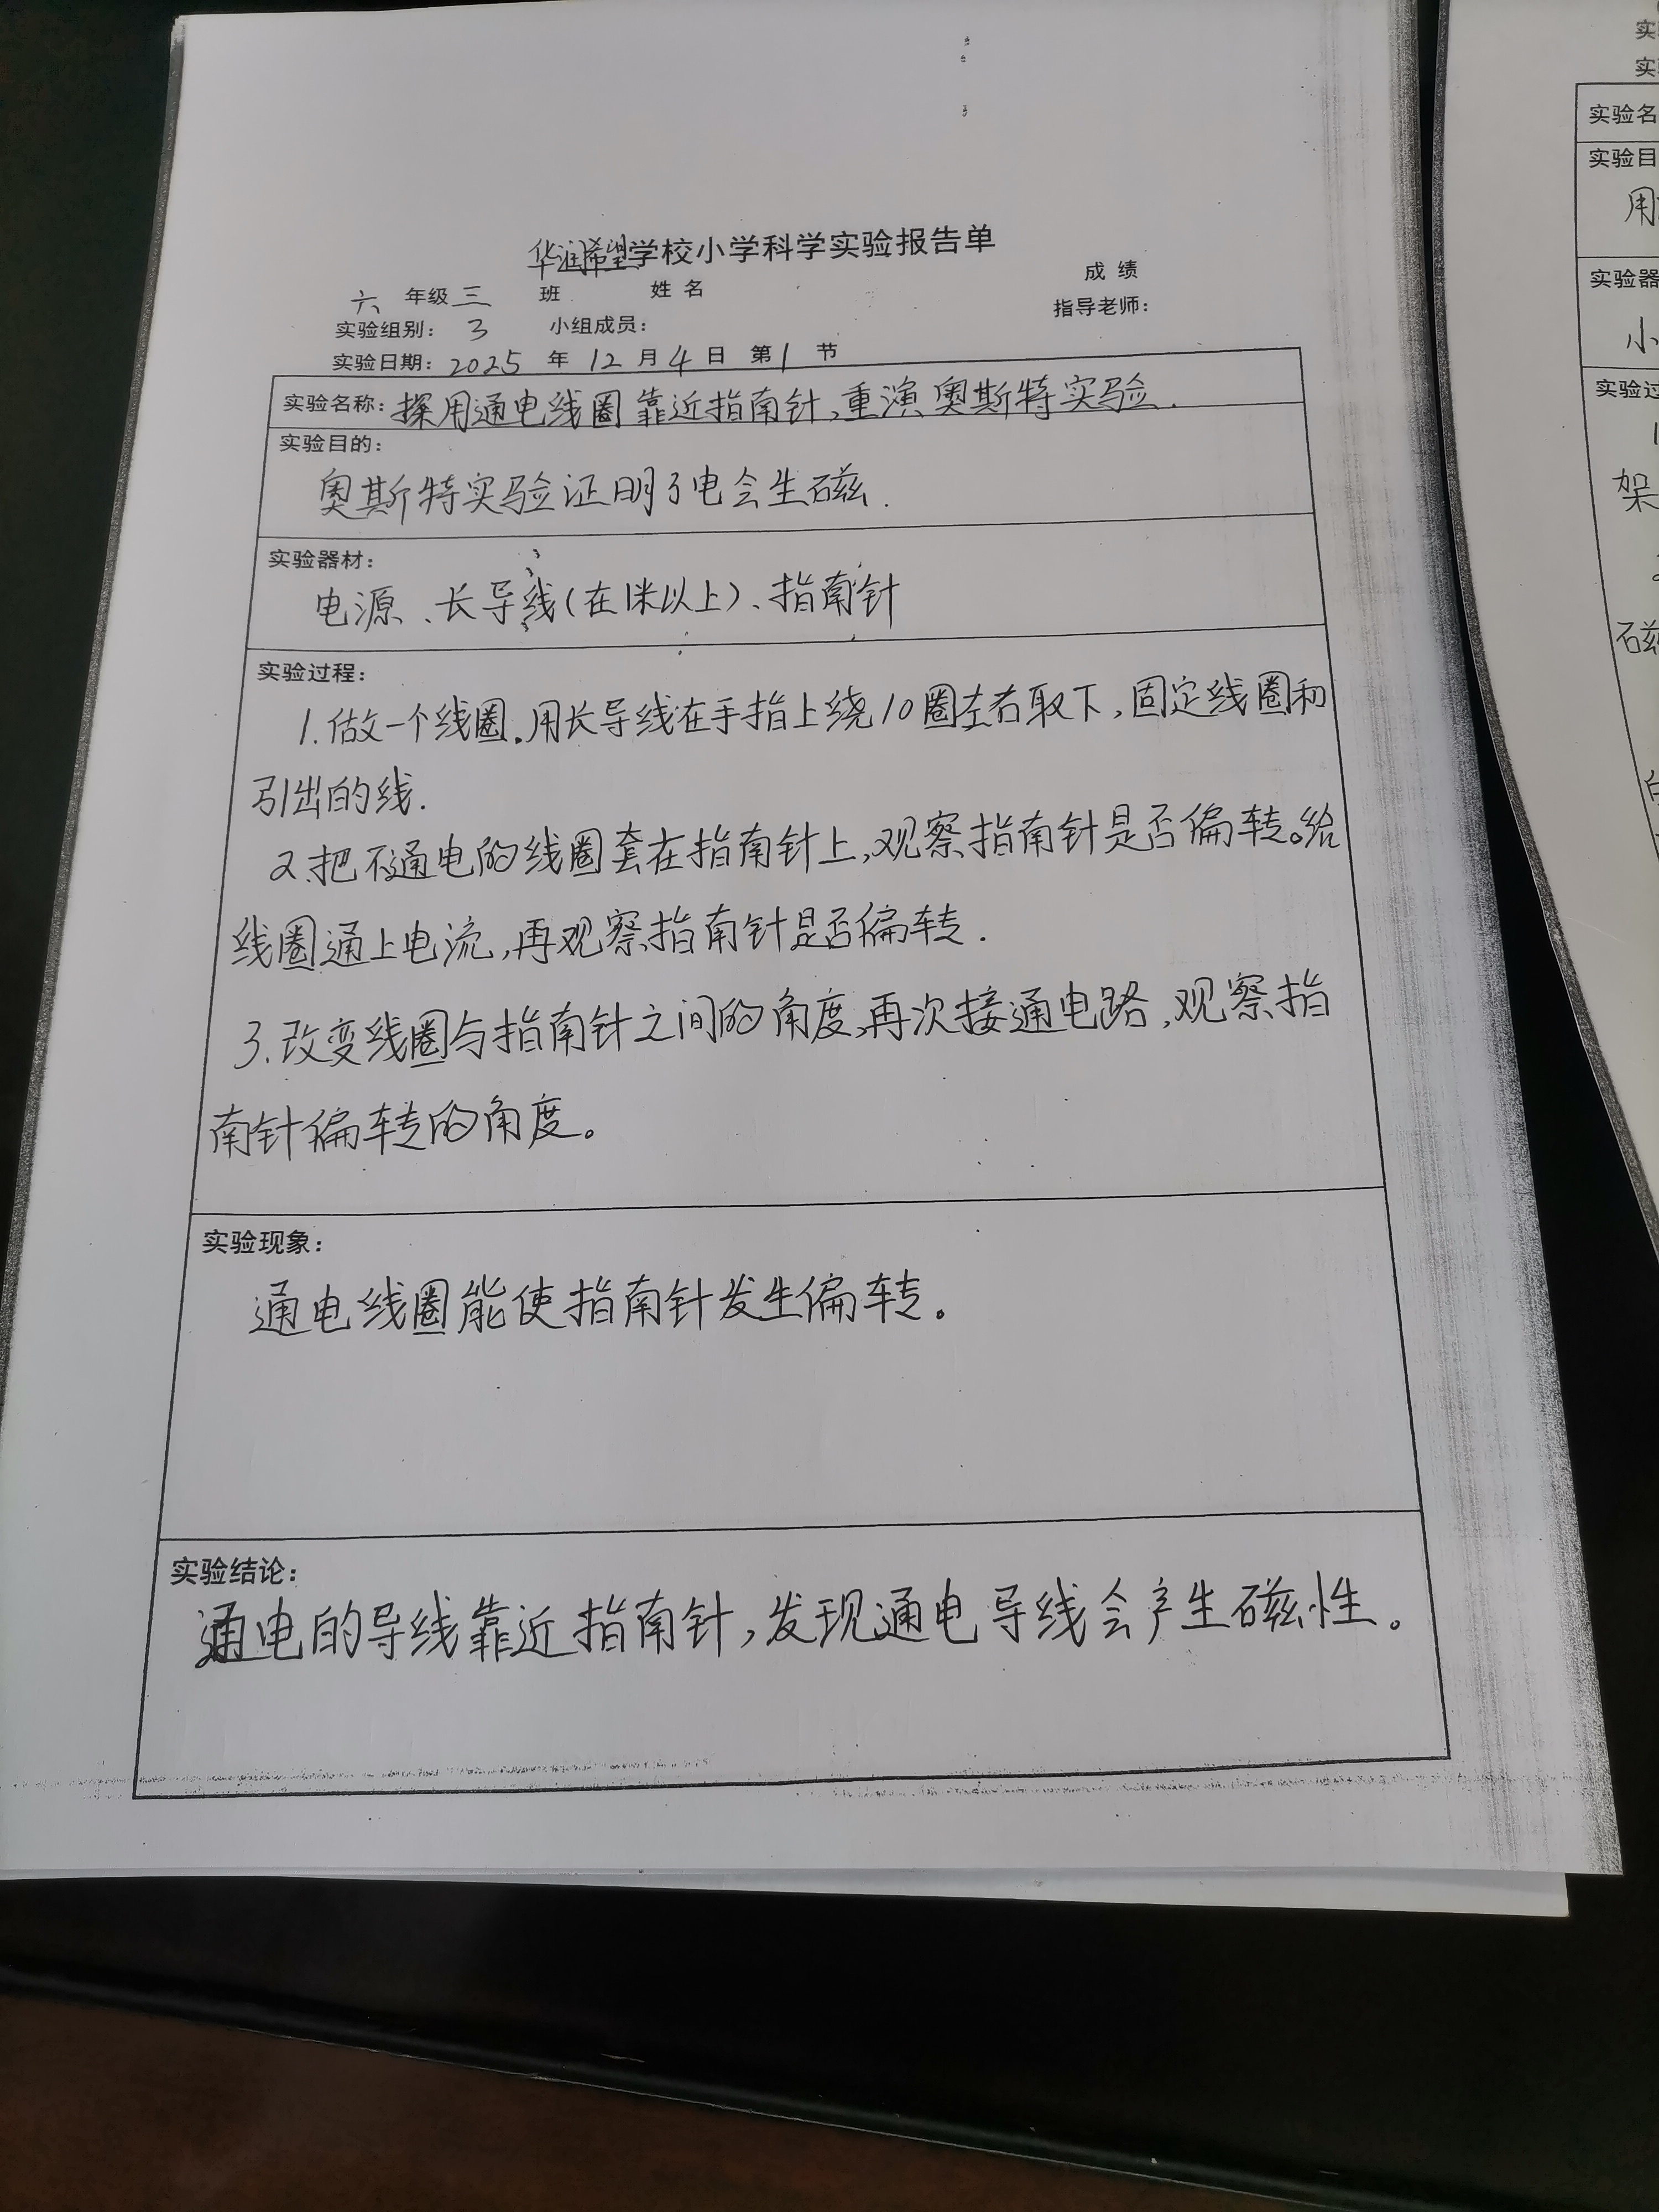 华润希望学校小学科学实验报告单
成 绩
六 年级 三 班 姓 名
指导老师：
实验组别： 3 小组成员：
实验日期：2025 年 12 月 4 日 第 1 节
实验名称：探用通电线圈靠近指南针，重演奥斯特实验.
实验目的：
奥斯特实验证明了电会生磁.
实验器材：
电源、长导线（在1米以上）、指南针
实验过程：
1.做一个线圈。用长导线在手指上绕10圈左右取下，固定线圈和
引出的线.
2.把不通电的线圈套在指南针上，观察指南针是否偏转。给
线圈通上电流，再观察指南针是否偏转.
3.改变线圈与指南针之间的角度，再次接通电路，观察指
南针偏转的角度。
实验现象：
通电线圈能使指南针发生偏转。
实验结论：
通电的导线靠近指南针，发现通电导线会产生磁性。
实
实
实验名
实验目
用
实验器
小
实验过
1
架
磁